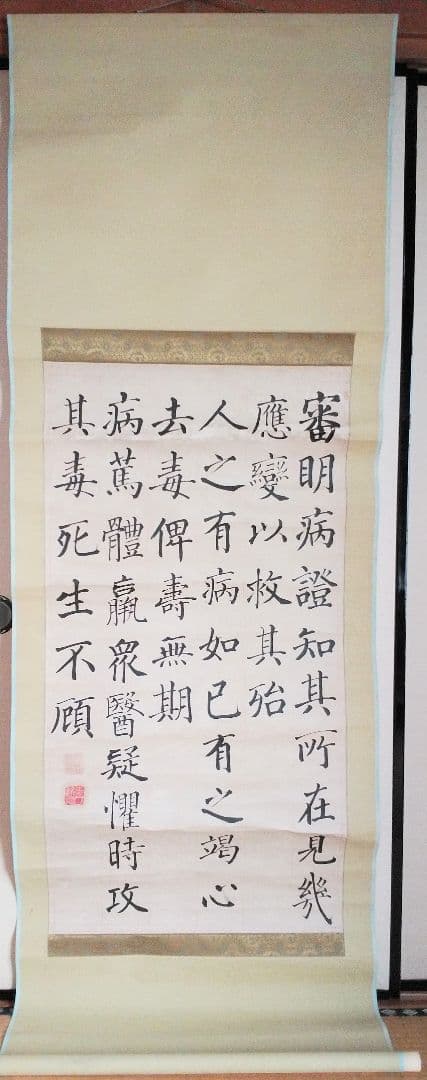 審明病證知其所在見幾
應變以救其殆
人之有病如己有之竭心
去毒俾壽無期
病篤體羸衆醫疑懼時攻
其毒死生不顧